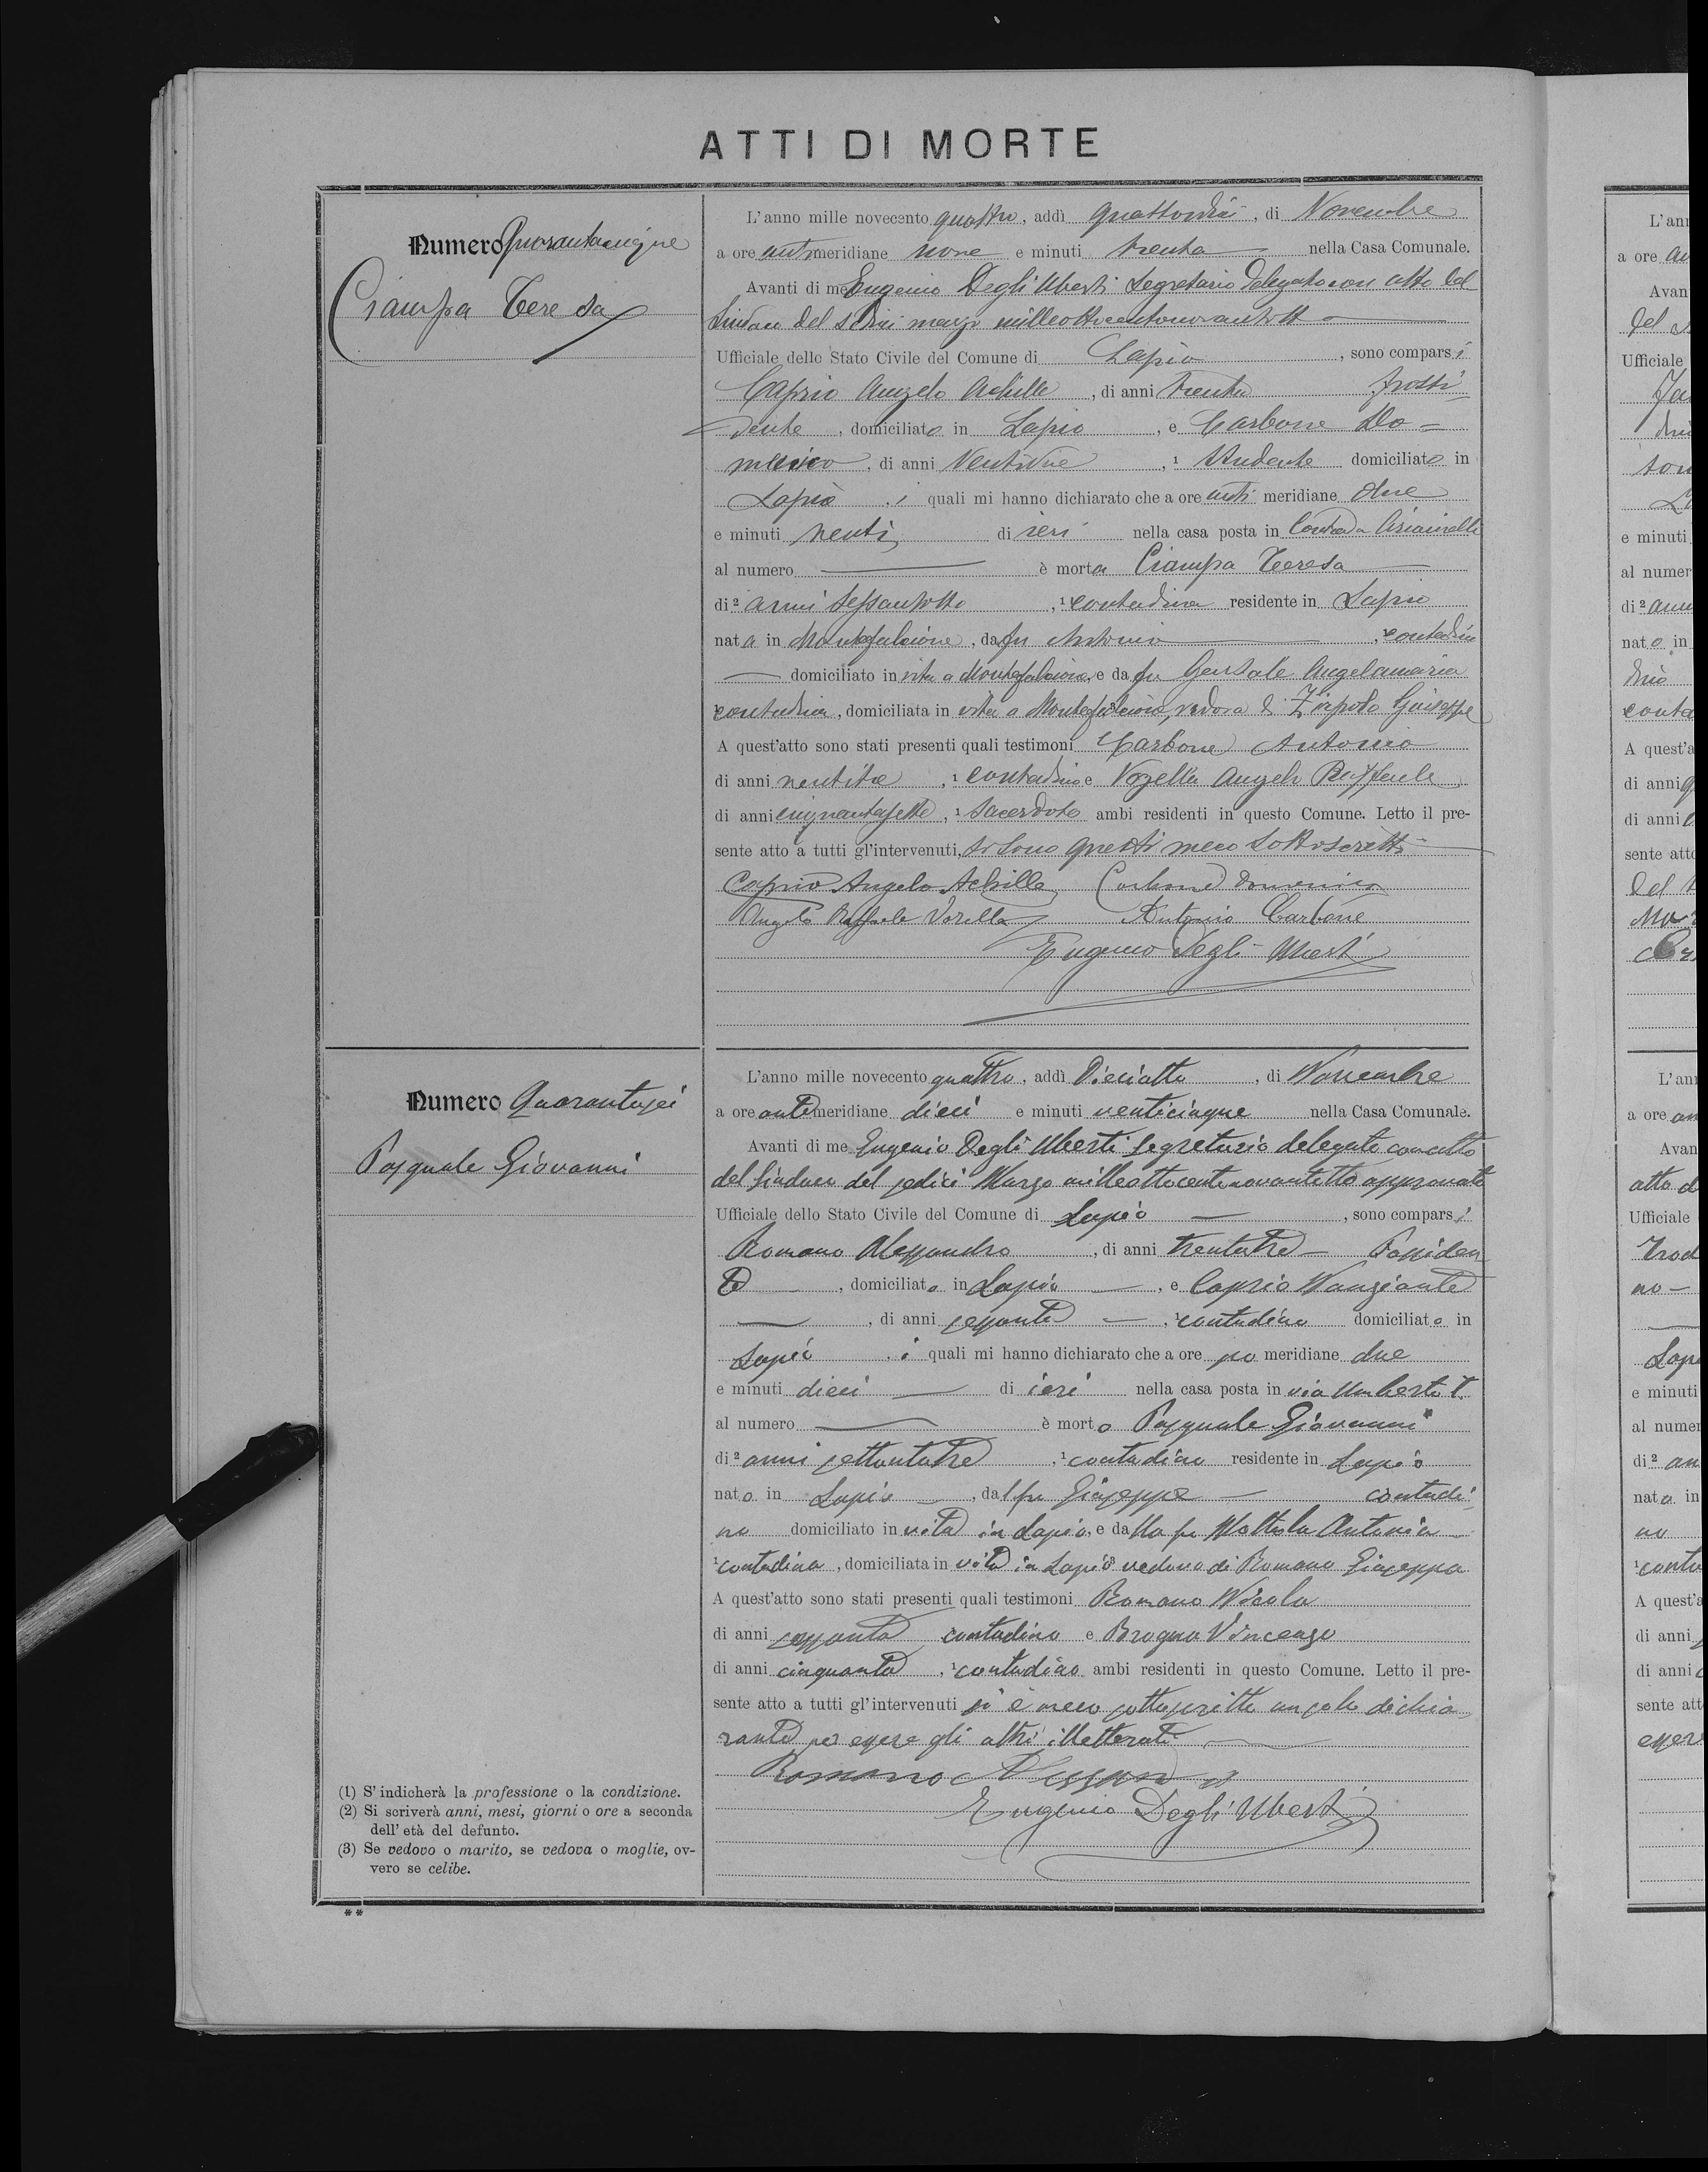 ATTI DI MORTE
Numero Quarantacinque
Ciampa Teresa
L'anno mille novecento quattro, addì quattordici, di Novembre
a ore antimeridiane nove e minuti trenta nella Casa Comunale.
Avanti di me Eugenio Degli Uberti Segretario delegato con atto del
Sindaco del sedici marzo milleottocentonovantotto
Ufficiale dello Stato Civile del Comune di Lapio, sono comparsi
Caprio Angelo Achille, di anni trenta possi-
dente, domiciliato in Lapio, e Carbone Do=
menico, di anni Ventidue, 1 Studente domiciliato in
Lapio, i quali mi hanno dichiarato che a ore anti meridiane due
e minuti venti di ieri nella casa posta in Contrada
al numero è morta Ciampa Teresa
di 2 anni sessantotto, 1 contadina residente in Lapio
nata in Montefalcione, da fu Antonio, contadin
domiciliato in vita a Montefalcione, e da fu Gensale Angelamaria
contadina, domiciliata in vita a Montefalcione, vedova di Zirpolo Giuseppe
A quest'atto sono stati presenti quali testimoni Carbone Antonio
di anni ventitre, 1 contadino e Vozella Angelo Raffaele
di anni cinquantasette, 1 Sacerdote ambi residenti in questo Comune. Letto il pre-
sente atto a tutti gl'intervenuti, si sono questi meco sottoscritti
Caprio Angelo Achille Carbone Domenico
Angelo Raffaele Vozella Antonio Carbone
Eugenio Degli Uberti
Numero Quarantasei
Pasquale Giovanni
L'anno mille novecento quattro, addì Dieciotto, di Novembre
a ore antimeridiane dieci e minuti venticinque nella Casa Comunale.
Avanti di me Eugenio Degli Uberti Segretario delegato con atto
del Sindaco del sedici Marzo milleottocentonovantotto approvato
Ufficiale dello Stato Civile del Comune di Lapio, sono comparsi
Romano Alessandro, di anni trentatre Possiden
te, domiciliato in Lapio, e Caprio Nunziante
, di anni sessanta, 1 contadino domiciliato in
Lapio, i quali mi hanno dichiarato che a ore po meridiane due
e minuti dieci di ieri nella casa posta in via Umberto I.
al numero è morto Pasquale Giovanni
di 2 anni settantatre, 1 contadino residente in Lapio
nato in Lapio, dal fu Giuseppe contadi-
no domiciliato in vita in Lapio, e dalla fu Mottola Antonia
1 contadina, domiciliata in vita in Lapio 3 vedovo di Romano Giuseppa
A quest'atto sono stati presenti quali testimoni Romano Nicola
di anni sessanta contadino e Brogna Vincenzo
di anni cinquanta, 1 contadino ambi residenti in questo Comune. Letto il pre-
sente atto a tutti gl'intervenuti si è meco sottoscritto un solo dichia-
rante per essere gli altri illetterati
Romano Alessandro
Eugenio Degli Uberti
(1) S'indicherà la professione o la condizione.
(2) Si scriverà anni, mesi, giorni o ore a seconda
dell'età del defunto.
(3) Se vedovo o marito, se vedova o moglie, ov-
vero se celibe.
**
L'an
a ore an
Avan
del
Ufficiale
e minuti
al numer
di 2 ann
nato in
conta
A quest'a
di anni
di anni
sente atto
L'an
a ore an
Avan
atto d
Ufficiale
no
Lapi
e minuti
al numer
di 2 an
nata in
no
1 conta
A quest'a
di anni
di anni
sente att
esser